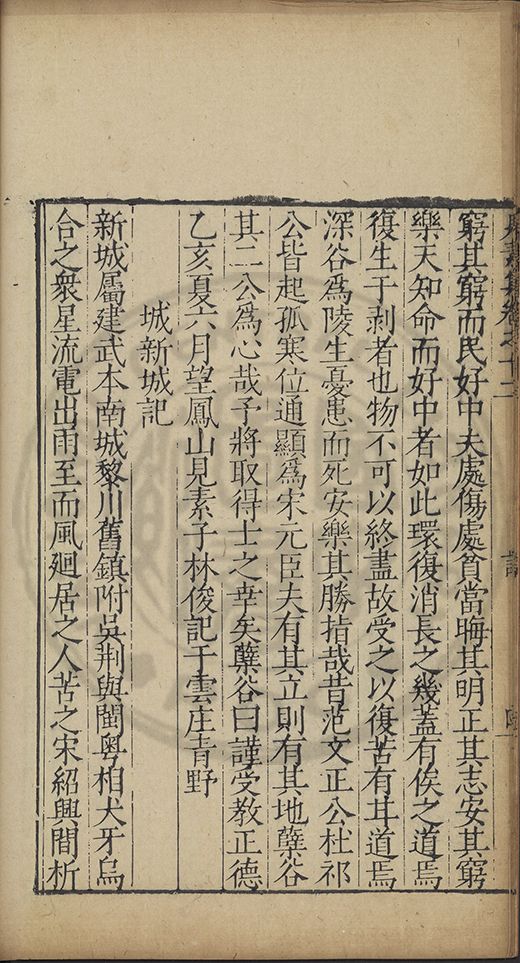 見素集卷之十二 記
窮其窮而民好中夫處傷處貧當晦其明正其志安其窮
樂天知命而好中者如此環復消長之幾蓋有俟之道焉
復生于剥者也物不可以終盡故受之以復苦有甘道焉
深谷爲陵生憂患而死安樂其勝㨖哉昔范文正公杜祁
公皆起孤寒位通顯爲宋元臣夫有其立則有其地蘖谷
其二公爲心哉予將取得士之幸矣蘖谷曰謹受教正德
乙亥夏六月望鳳山見素子林俊記于雲庄青野
城新城記
新城屬建武本南城黎川舊鎮附吳荆與閩粤相犬牙烏
合之衆星流電出雨至而風廻居之人苦之宋紹興間析